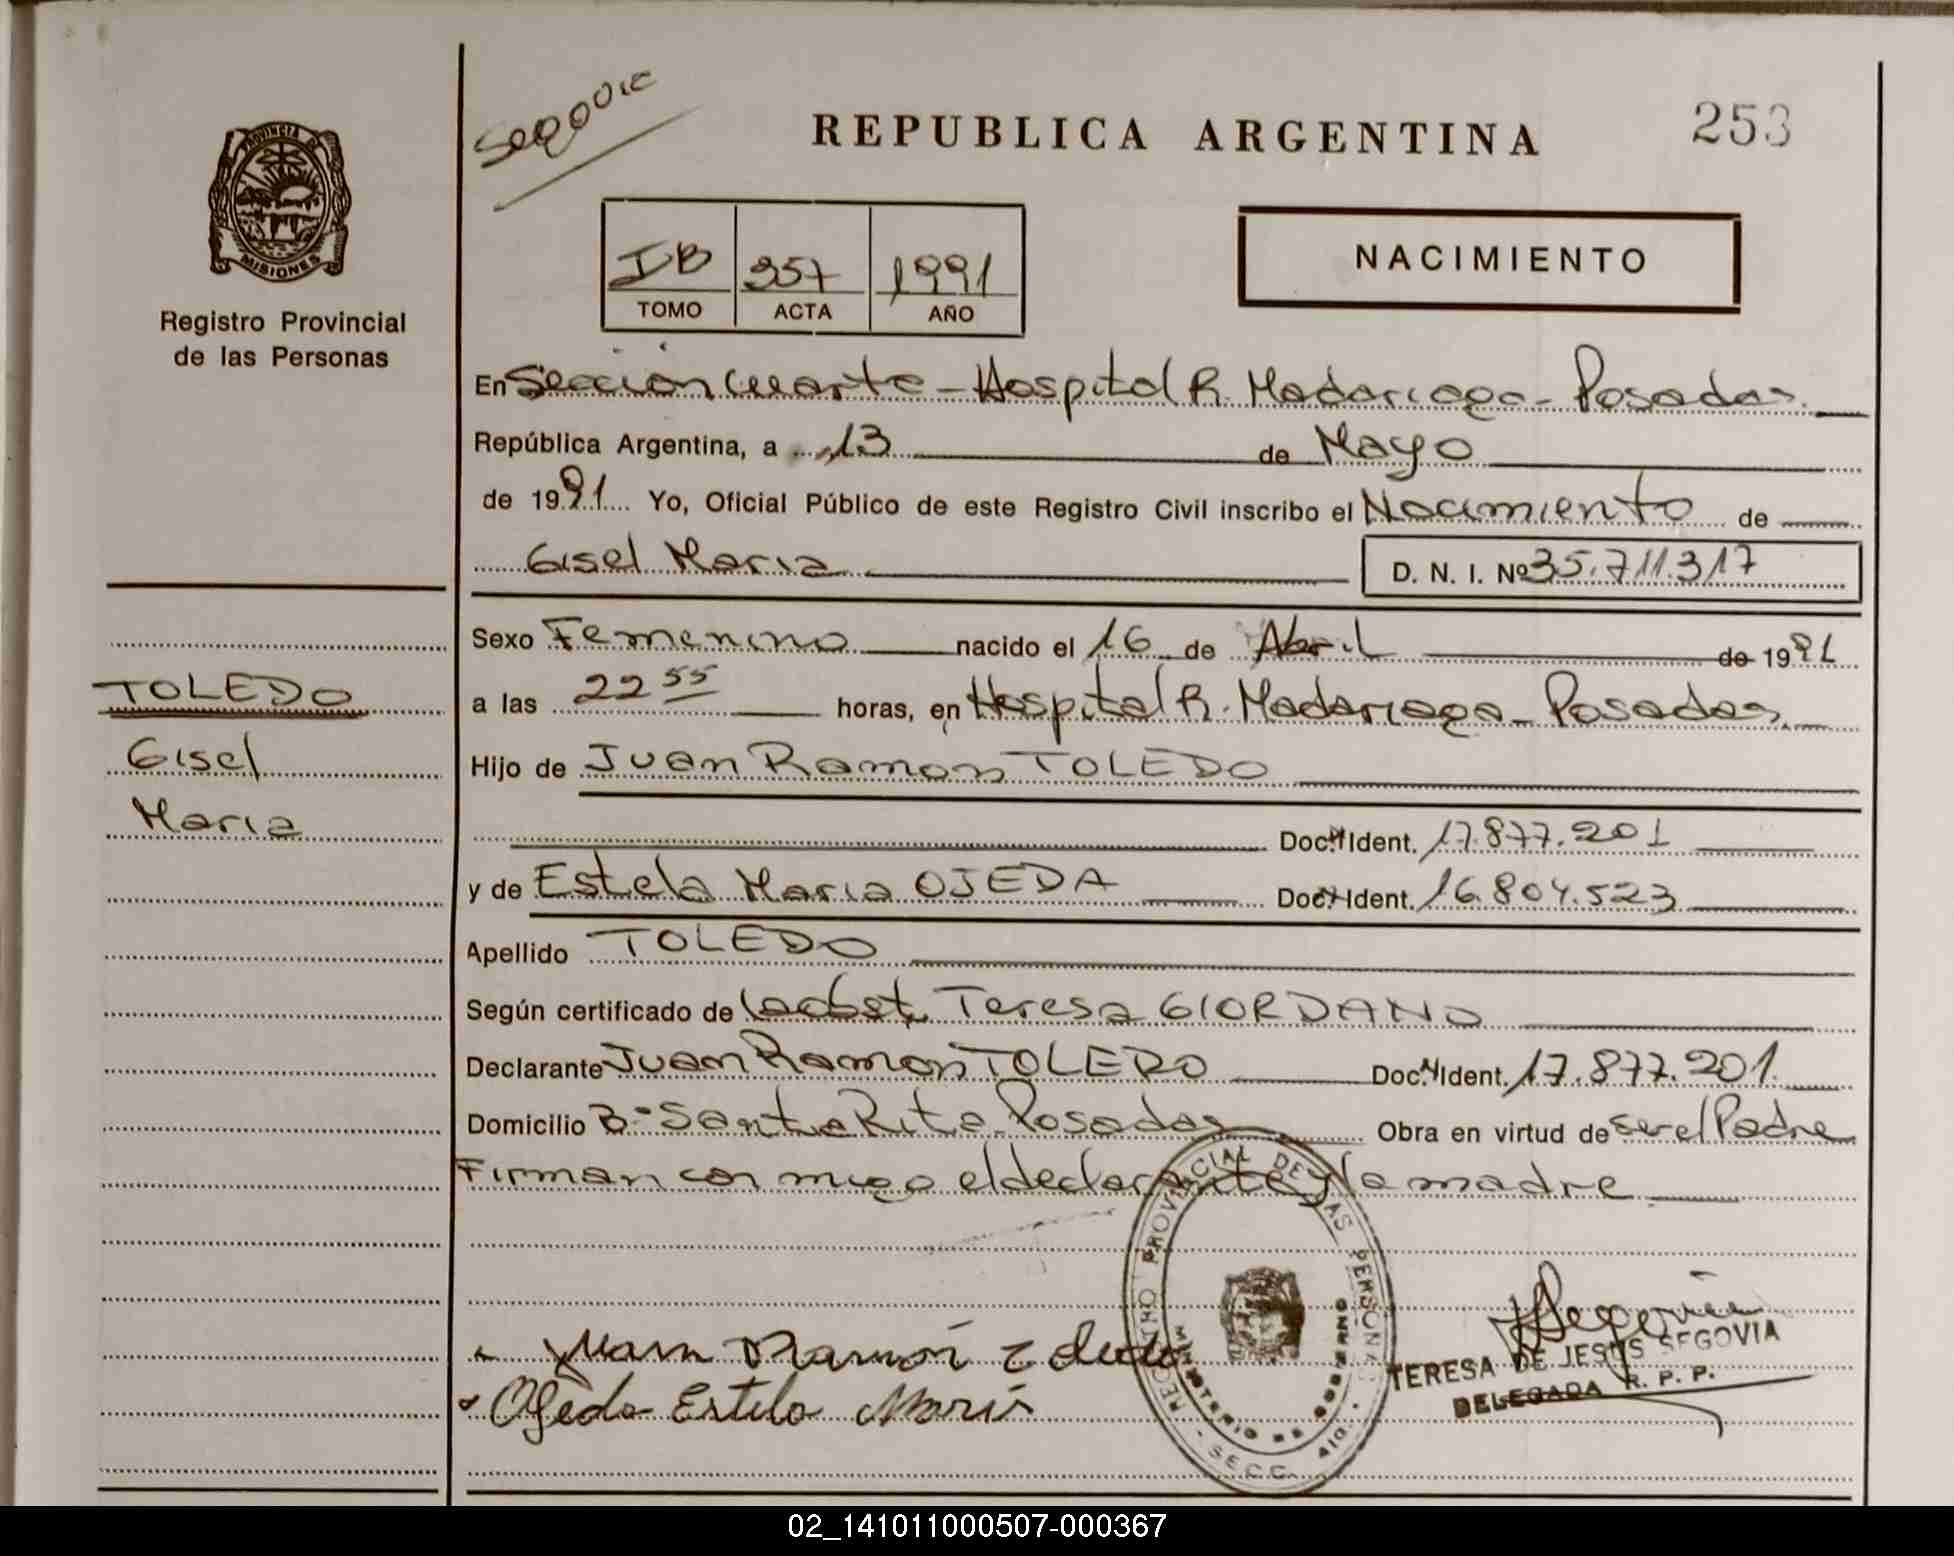 PROVINCIA DE
MISIONES
Registro Provincial
de las Personas
TOLEDO
Gisel
Maria
Segovia
REPUBLICA ARGENTINA
253
IB 357 1991
TOMO ACTA AÑO
NACIMIENTO
En Sección Cuarta - Hospital R. Madariaga - Posadas.
República Argentina, a 13 de Mayo
de 1991 Yo, Oficial Público de este Registro Civil inscribo el Nacimiento de
Gisel Maria D. N. I. Nº 35.711.317
Sexo Femenino nacido el 16 de Abril de 1991
a las 22 55 horas, en Hospital R. Madariaga - Posadas.
Hijo de Juan Ramon TOLEDO
Doc. N Ident. 17.877.201
y de Estela Maria OJEDA Doc. N Ident. 16.804.523
Apellido TOLEDO
Según certificado de Teresa GIORDANO
Declarante Juan Ramon TOLEDO Doc. N Ident. 17.877.201.
Domicilio Bº Santa Rita Posadas Obra en virtud de ser el Padre
Firman con migo el declarante y la madre
Juan Ramón Toledo
Ojeda Estela María
REGISTRO PROVINCIAL DE LAS PERSONAS
MINISTERIO DE GOBIERNO
- SECC. 4ta. -
Segovia
TERESA DE JESUS SEGOVIA
DELEGADA R. P. P.
02_141011000507-000367